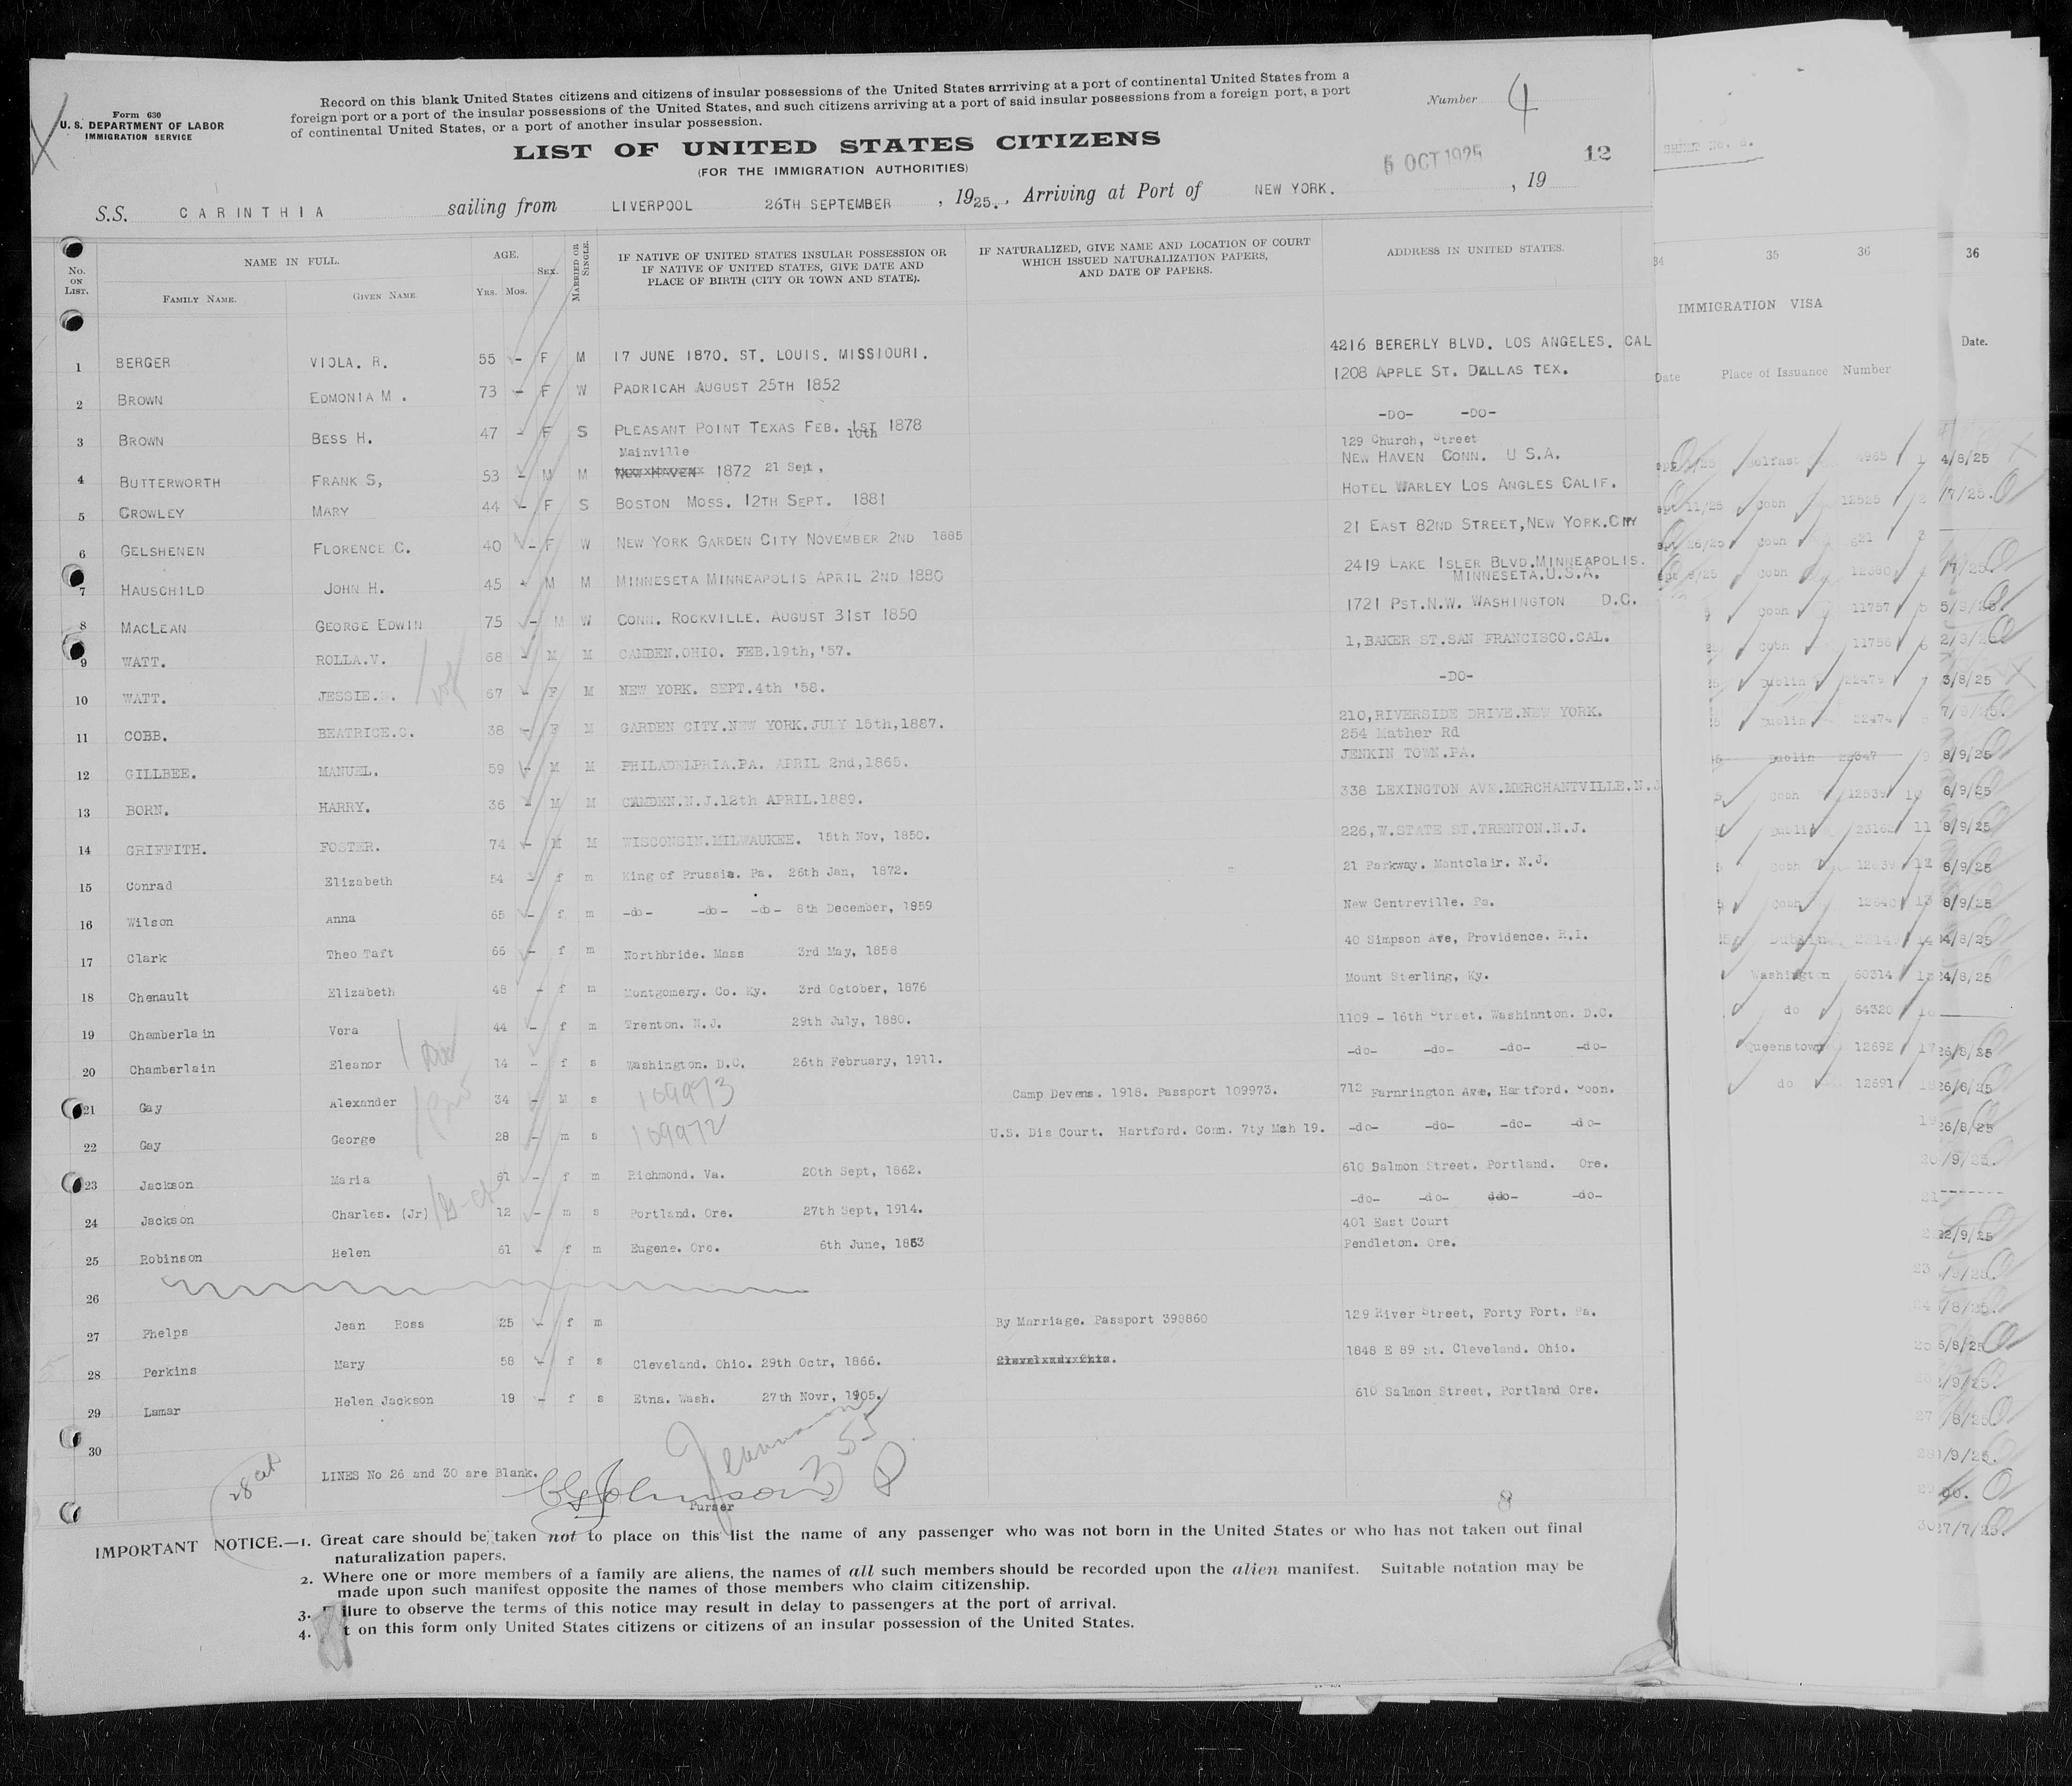 Form 630
U. S. DEPARTMENT OF LABOR
IMMIGRATION SERVICE
Record on this blank United States citizens and citizens of insular possessions of the United States arrriving at a port of continental United States from a
foreign port or a port of the insular possessions of the United States, and such citizens arriving at a port of said insular possessions from a foreign port, a port
of continental United States, or a port of another insular possession.
Number 4
LIST OF UNITED STATES CITIZENS
(FOR THE IMMIGRATION AUTHORITIES)
OCT 1925
12
S.S. CARINTHIA sailing from LIVERPOOL 26TH SEPTEMBER , 1925., Arriving at Port of NEW YORK. , 19
No. ON LIST.
NAME IN FULL.
FAMILY NAME.
GIVEN NAME
AGE.
YRS. MOS.
SEX.
MARRIED OR SINGLE.
IF NATIVE OF UNITED STATES INSULAR POSSESSION OR
IF NATIVE OF UNITED STATES, GIVE DATE AND
PLACE OF BIRTH (CITY OR TOWN AND STATE).
IF NATURALIZED, GIVE NAME AND LOCATION OF COURT
WHICH ISSUED NATURALIZATION PAPERS,
AND DATE OF PAPERS.
ADDRESS IN UNITED STATES.
1 BERGER VIOLA. R. 55 - F M 17 JUNE 1870. ST. LOUIS. MISSIOURI. 4216 BERERLY BLVD. LOS ANGELES. CAL
2 BROWN EDMONIA M. 73 - F W PADRICAH AUGUST 25TH 1852 1208 APPLE ST. DALLAS TEX.
3 BROWN BESS H. 47 - F S PLEASANT POINT TEXAS FEB. 1ST 1878 -DO- -DO-
10th
Mainville
129 Church, Street
4 BUTTERWORTH FRANK S, 53 - M M 1872 21 Sept, NEW HAVEN CONN. U S.A.
5 CROWLEY MARY 44 - F S BOSTON MOSS. 12TH SEPT. 1881 HOTEL WARLEY LOS ANGLES CALIF.
6 GELSHENEN FLORENCE C. 40 - F W NEW YORK GARDEN CITY NOVEMBER 2ND 1885 21 EAST 82ND STREET,NEW YORK.CITY
7 HAUSCHILD JOHN H. 45 - M M MINNESETA MINNEAPOLIS APRIL 2ND 1880 2419 LAKE ISLER BLVD.MINNEAPOLIS.
MINNESETA.U.S.A.
8 MACLEAN GEORGE EDWIN 75 - M W CONN. ROCKVILLE. AUGUST 31ST 1850 1721 PST.N.W. WASHINGTON D.C.
9 WATT. ROLLA.V. 68 - M M CAMDEN.OHIO. FEB.19th,'57. 1,BAKER ST.SAN FRANCISCO.CAL.
10 WATT. JESSIE. 67 - F M NEW YORK. SEPT.4th '58. -DO-
11 COBB. BEATRICE.C. 38 - F M GARDEN CITY.NEW YORK.JULY 15th,1887. 210,RIVERSIDE DRIVE.NEW YORK.
254 Mather Rd
12 GILLBEE. MANUEL. 59 - M M PHILADELPHIA.PA. APRIL 2nd,1865. JENKIN TOWN.PA.
13 BORN. HARRY. 36 - M M CAMDEN.N.J.12th APRIL.1889. 338 LEXINGTON AVE.MERCHANTVILLE.N.J
14 GRIFFITH. FOSTER. 74 - M M WISCONSIN.MILWAUKEE. 15th Nov, 1850. 226,W.STATE ST.TRENTON.N.J.
15 Conrad Elizabeth 54 - f m King of Prussia. Pa. 26th Jan, 1872. 21 Parkway. Montclair. N.J.
16 Wilson Anna 65 - f m -do- -do- -do- 8th December, 1859 New Centreville. Pa.
17 Clark Theo Taft 66 - f m Northbride. Mass 3rd May, 1858 40 Simpson Ave, Providence. R.I.
18 Chenault Elizabeth 48 - f m Montgomery. Co. Ky. 3rd October, 1876 Mount Sterling, Ky.
19 Chamberlain Vera 44 - f m Trenton. N.J. 29th July, 1880. 1109 - 16th Street. Washinnton. D.C.
20 Chamberlain Eleanor 14 - f s Washington. D.C. 26th February, 1911. -do- -do- -do- -do-
21 Gay Alexander 34 - M s 109973 Camp Devens. 1918. Passport 109973. 712 Farnrington Ave, Hartford. Coon.
22 Gay George 28 - m s 109972 U.S. Dis Court. Hartford. Conn. 7ty Mch 19. -do- -do- -do- -do-
23 Jackson Maria 61 - f m Richmond. Va. 20th Sept, 1862. 610 Salmon Street. Portland. Ore.
24 Jackson Charles. (Jr) 12 - m s Portland. Ore. 27th Sept, 1914. -do- -do- -do- -do-
401 East Court
25 Robinson Helen 61 - f m Eugene. Ore. 6th June, 1863 Pendleton. Ore.
26
27 Phelps Jean Ross 25 - f m By Marriage. Passport 398860 129 River Street, Forty Fort. Pa.
28 Perkins Mary 58 - f s Cleveland. Ohio. 29th Octr, 1866. 1848 E 89 St. Cleveland. Ohio.
29 Lamar Helen Jackson 19 - f s Etna. Wash. 27th Novr, 1905. 610 Salmon Street, Portland Ore.
30
LINES No 26 and 30 are Blank.
Purser
8
IMPORTANT NOTICE.—1. Great care should be taken not to place on this list the name of any passenger who was not born in the United States or who has not taken out final
naturalization papers.
2. Where one or more members of a family are aliens, the names of all such members should be recorded upon the alien manifest. Suitable notation may be
made upon such manifest opposite the names of those members who claim citizenship.
3. ilure to observe the terms of this notice may result in delay to passengers at the port of arrival.
4. t on this form only United States citizens or citizens of an insular possession of the United States.
34 35 36 36
IMMIGRATION VISA
Date.
Date Place of Issuance Number
4/8/25
Cobh 12525
Cobh 621
Cobh
Cobh 11757
Cobh 11756
Dublin 22479 3/8/25
Dublin 22474
Dublin 8/9/25
Cobh 8/9/25
11 8/9/25
Cobh 12639 8/9/25
Cobh 12640 13 8/9/25
Dublin
Washington 60314 24/8/25
do 64320
Queenstown 12692 17 26/8/25
do 12691 26/8/25
26/8/25
22/9/25